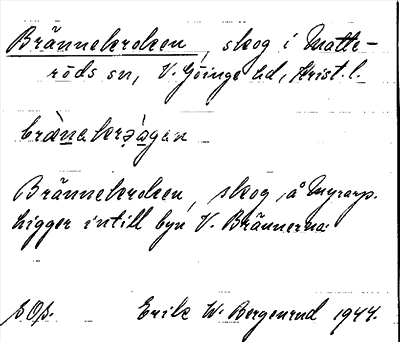 Brännekroken, skog i Matte-
röds sn, V. Göinge hd, Krist. l.
Brännekroken, skog, å Myrarp.
ligger intill byn V. Brännerna.
s Op. Erik W. Bergenrud 1944.